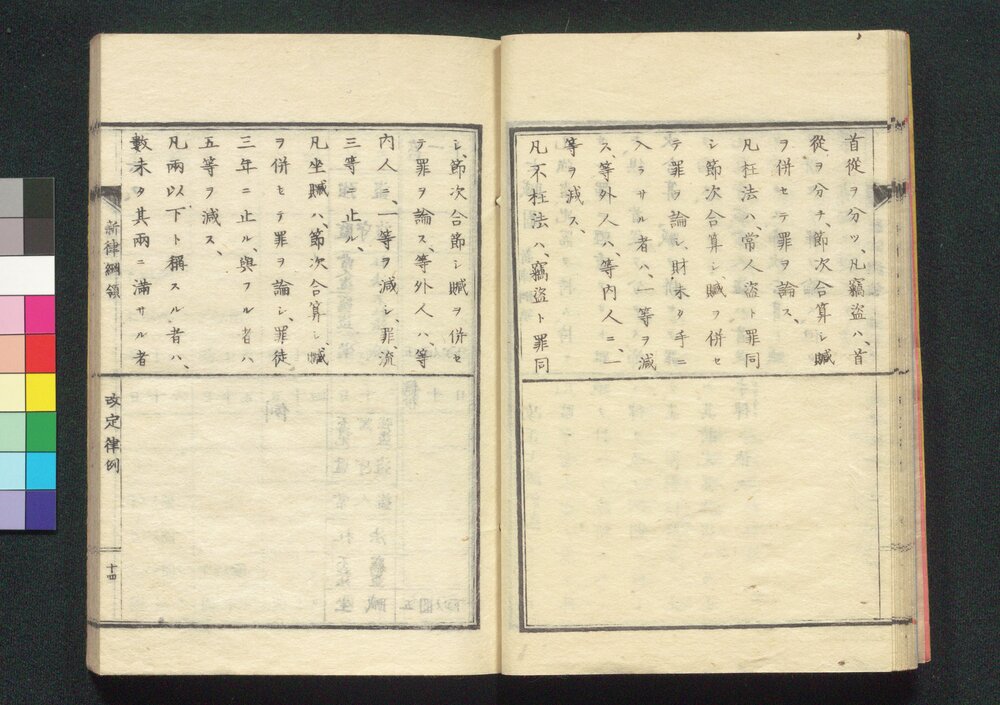 首從ヲ分ツ、凡竊盜ハ、首
從ヲ分チ、節次合算シ贓
ヲ併セテ罪ヲ論ス、
凡枉法ハ、常人盜ト罪同
シ節次合算シ贓ヲ併セ
テ罪ヲ論シ、財未タ手ニ
入ラサル者ハ、一等ヲ減
ス、等外人ハ、等內人ニ、一
等ヲ減ス、
凡不枉法ハ、竊盜ト罪同
シ、節次合節シ贓ヲ併セ
テ罪ヲ論ス、等外人ハ、等
內人ニ、一等ヲ減シ、罪流
三等ニ止ル、
凡坐贓ハ、節次合算シ、贓
ヲ併セテ罪ヲ論シ、罪徒
三年ニ止ル、與フル者ハ
五等ヲ減ス、
凡兩以下ト稱スル者ハ、
數未タ其兩ニ滿サル者
新律綱領
改定律例
十四